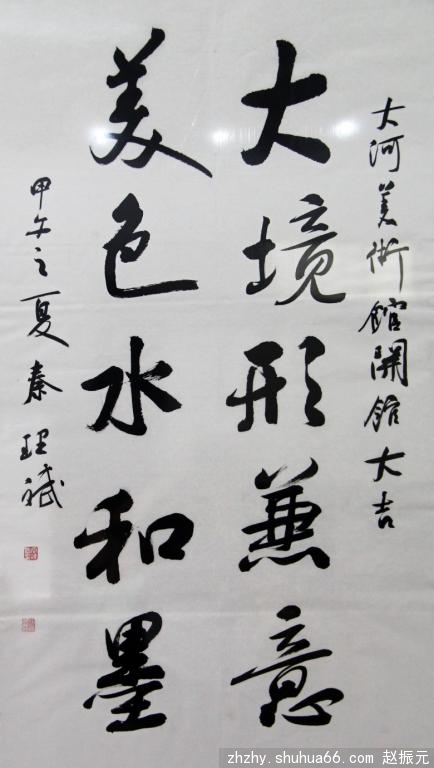 大河美術館開館大吉
大境形兼意
美色水和墨
甲午之夏秦理斌
zhzhy.shuhua66.com 赵振元